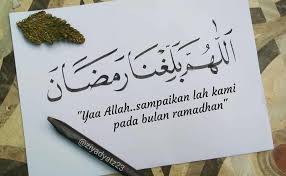 اَللّٰهُمَّ بَلِّغْنَا رَمَضَانَ
"Yaa Allah..sampaikan lah kami
pada bulan ramadhan"
@ziyadyatz23